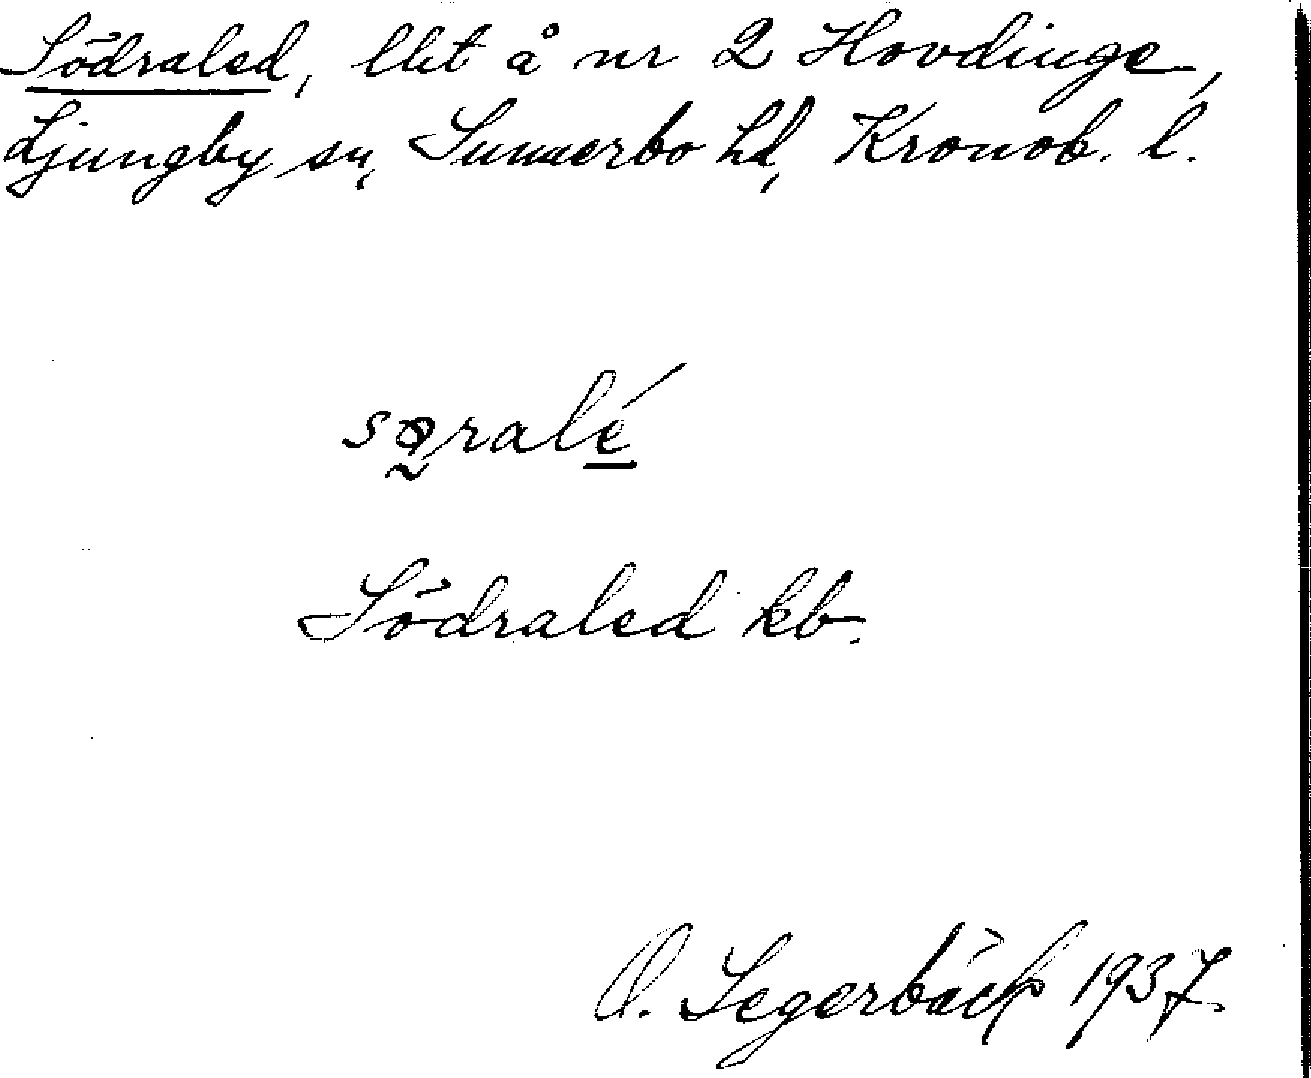 Södraled, lht å nr 2 Hovdinge,
Ljungby sn, Sunnerbo hd, Kronob. l.
Södraled kb.
O. Segerbäck 1937